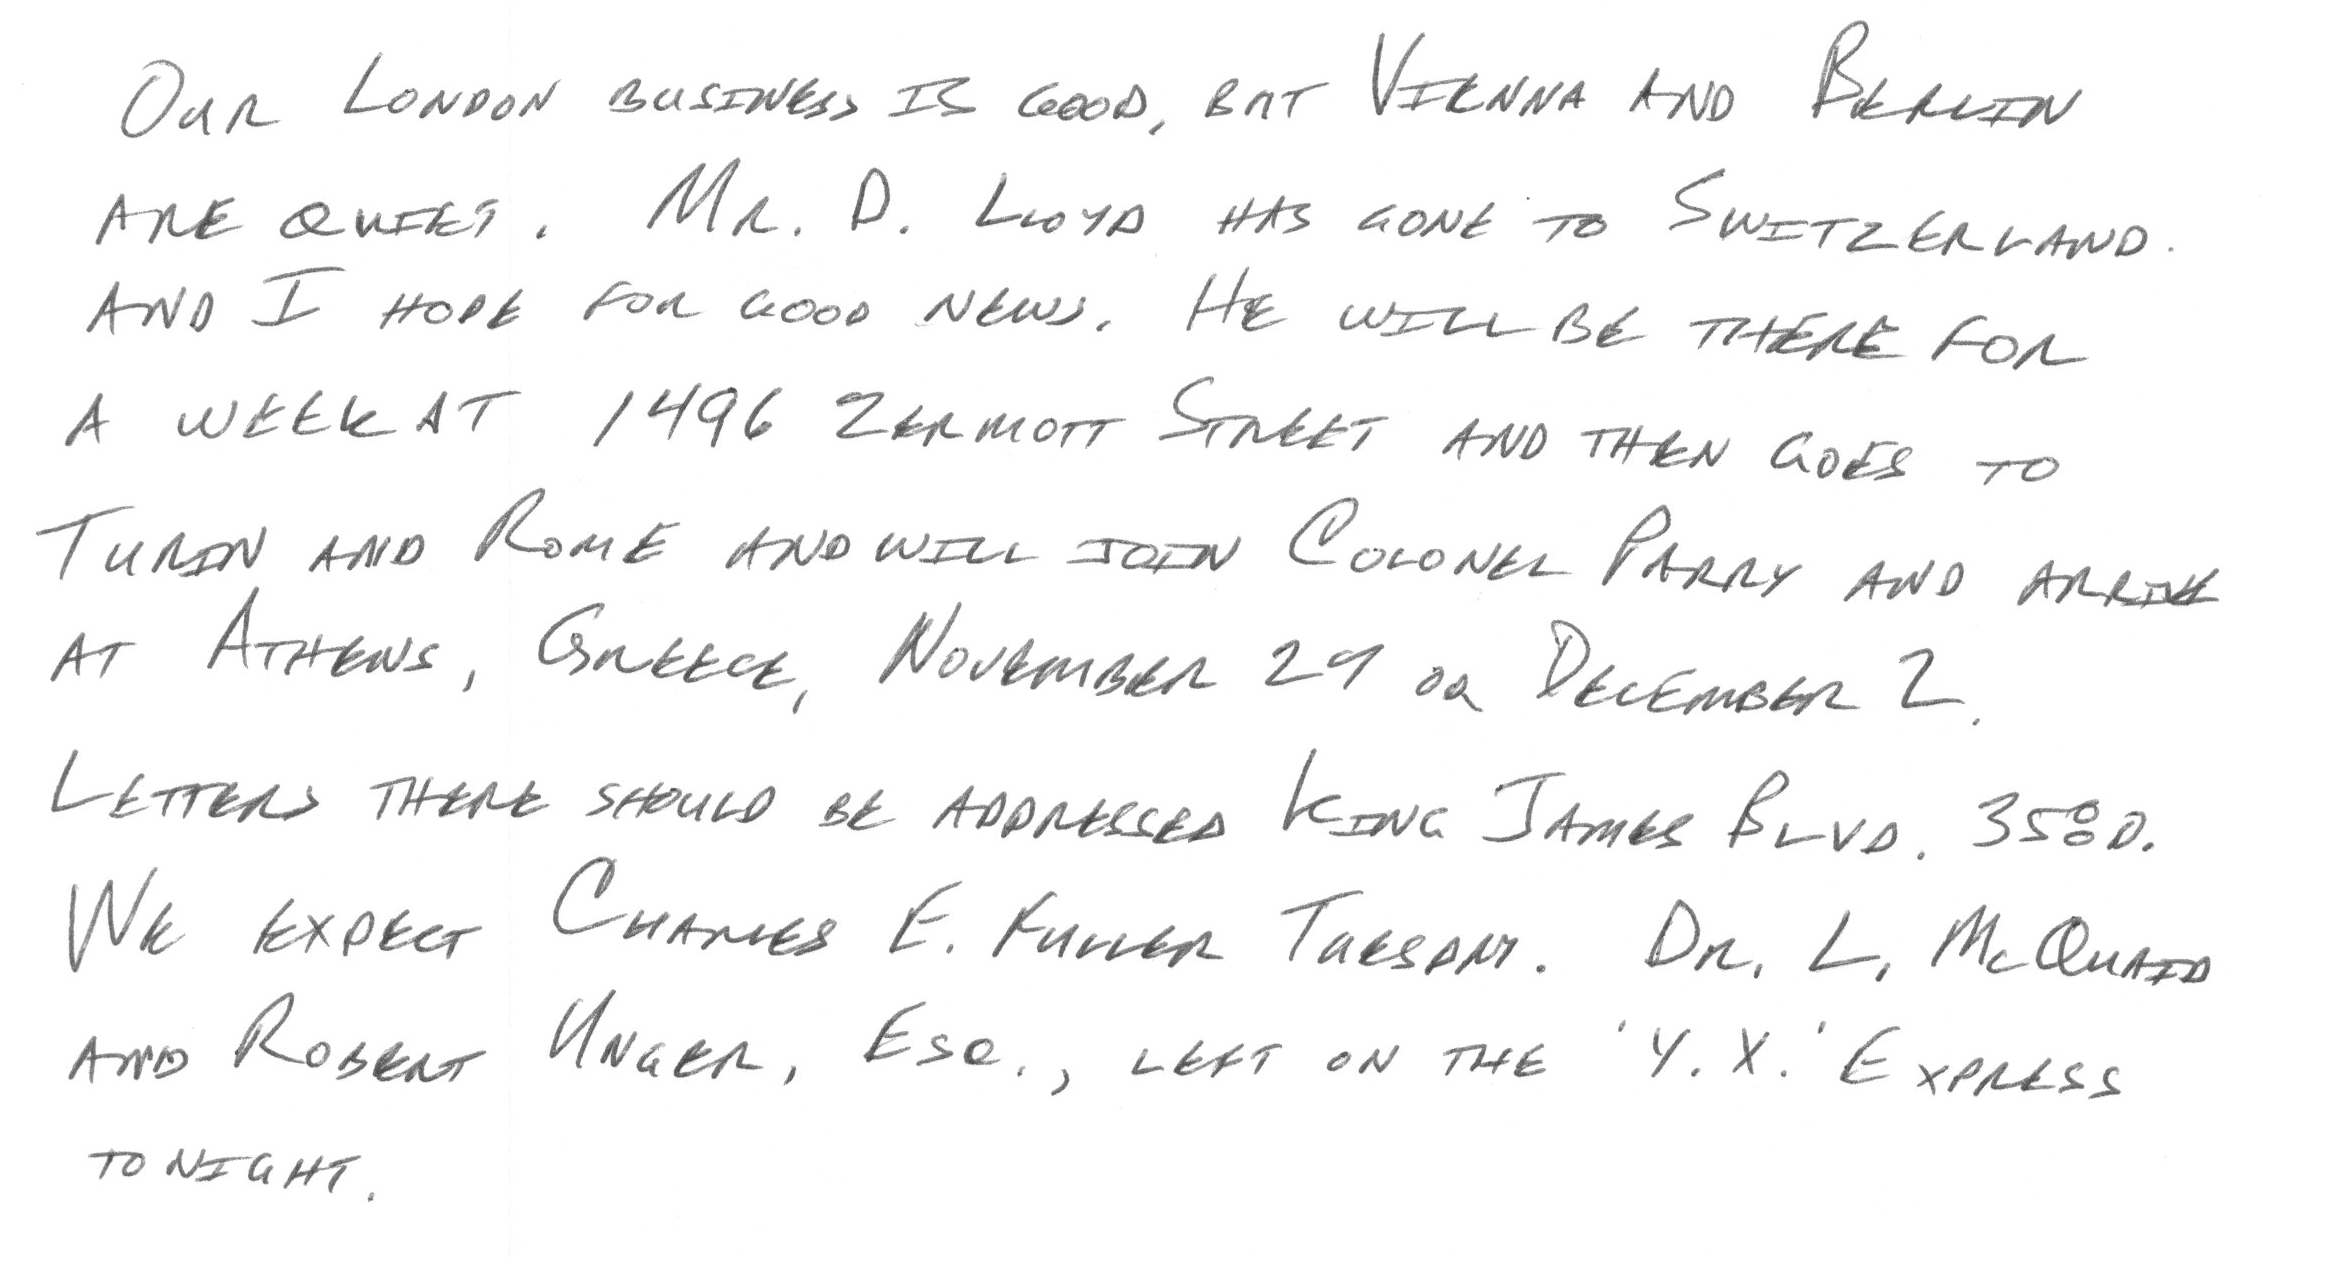 Our London business is good, but Vienna and Berlin
are quiet. Mr. D. Lloyd has gone to Switzerland.
and I hope for good news. He will be there for
a week at 1496 Zermott Street and then goes to
Turin and Rome and will join Colonel Parry and arrive
at Athens, Greece, November 29 or December 2.
Letters there should be addressed King James Blvd. 3580.
We expect Charles E. Fuller Tuesday. Dr. L. McQuaid
and Robert Unger, Esq., left on the 'Y.X.' Express
tonight.